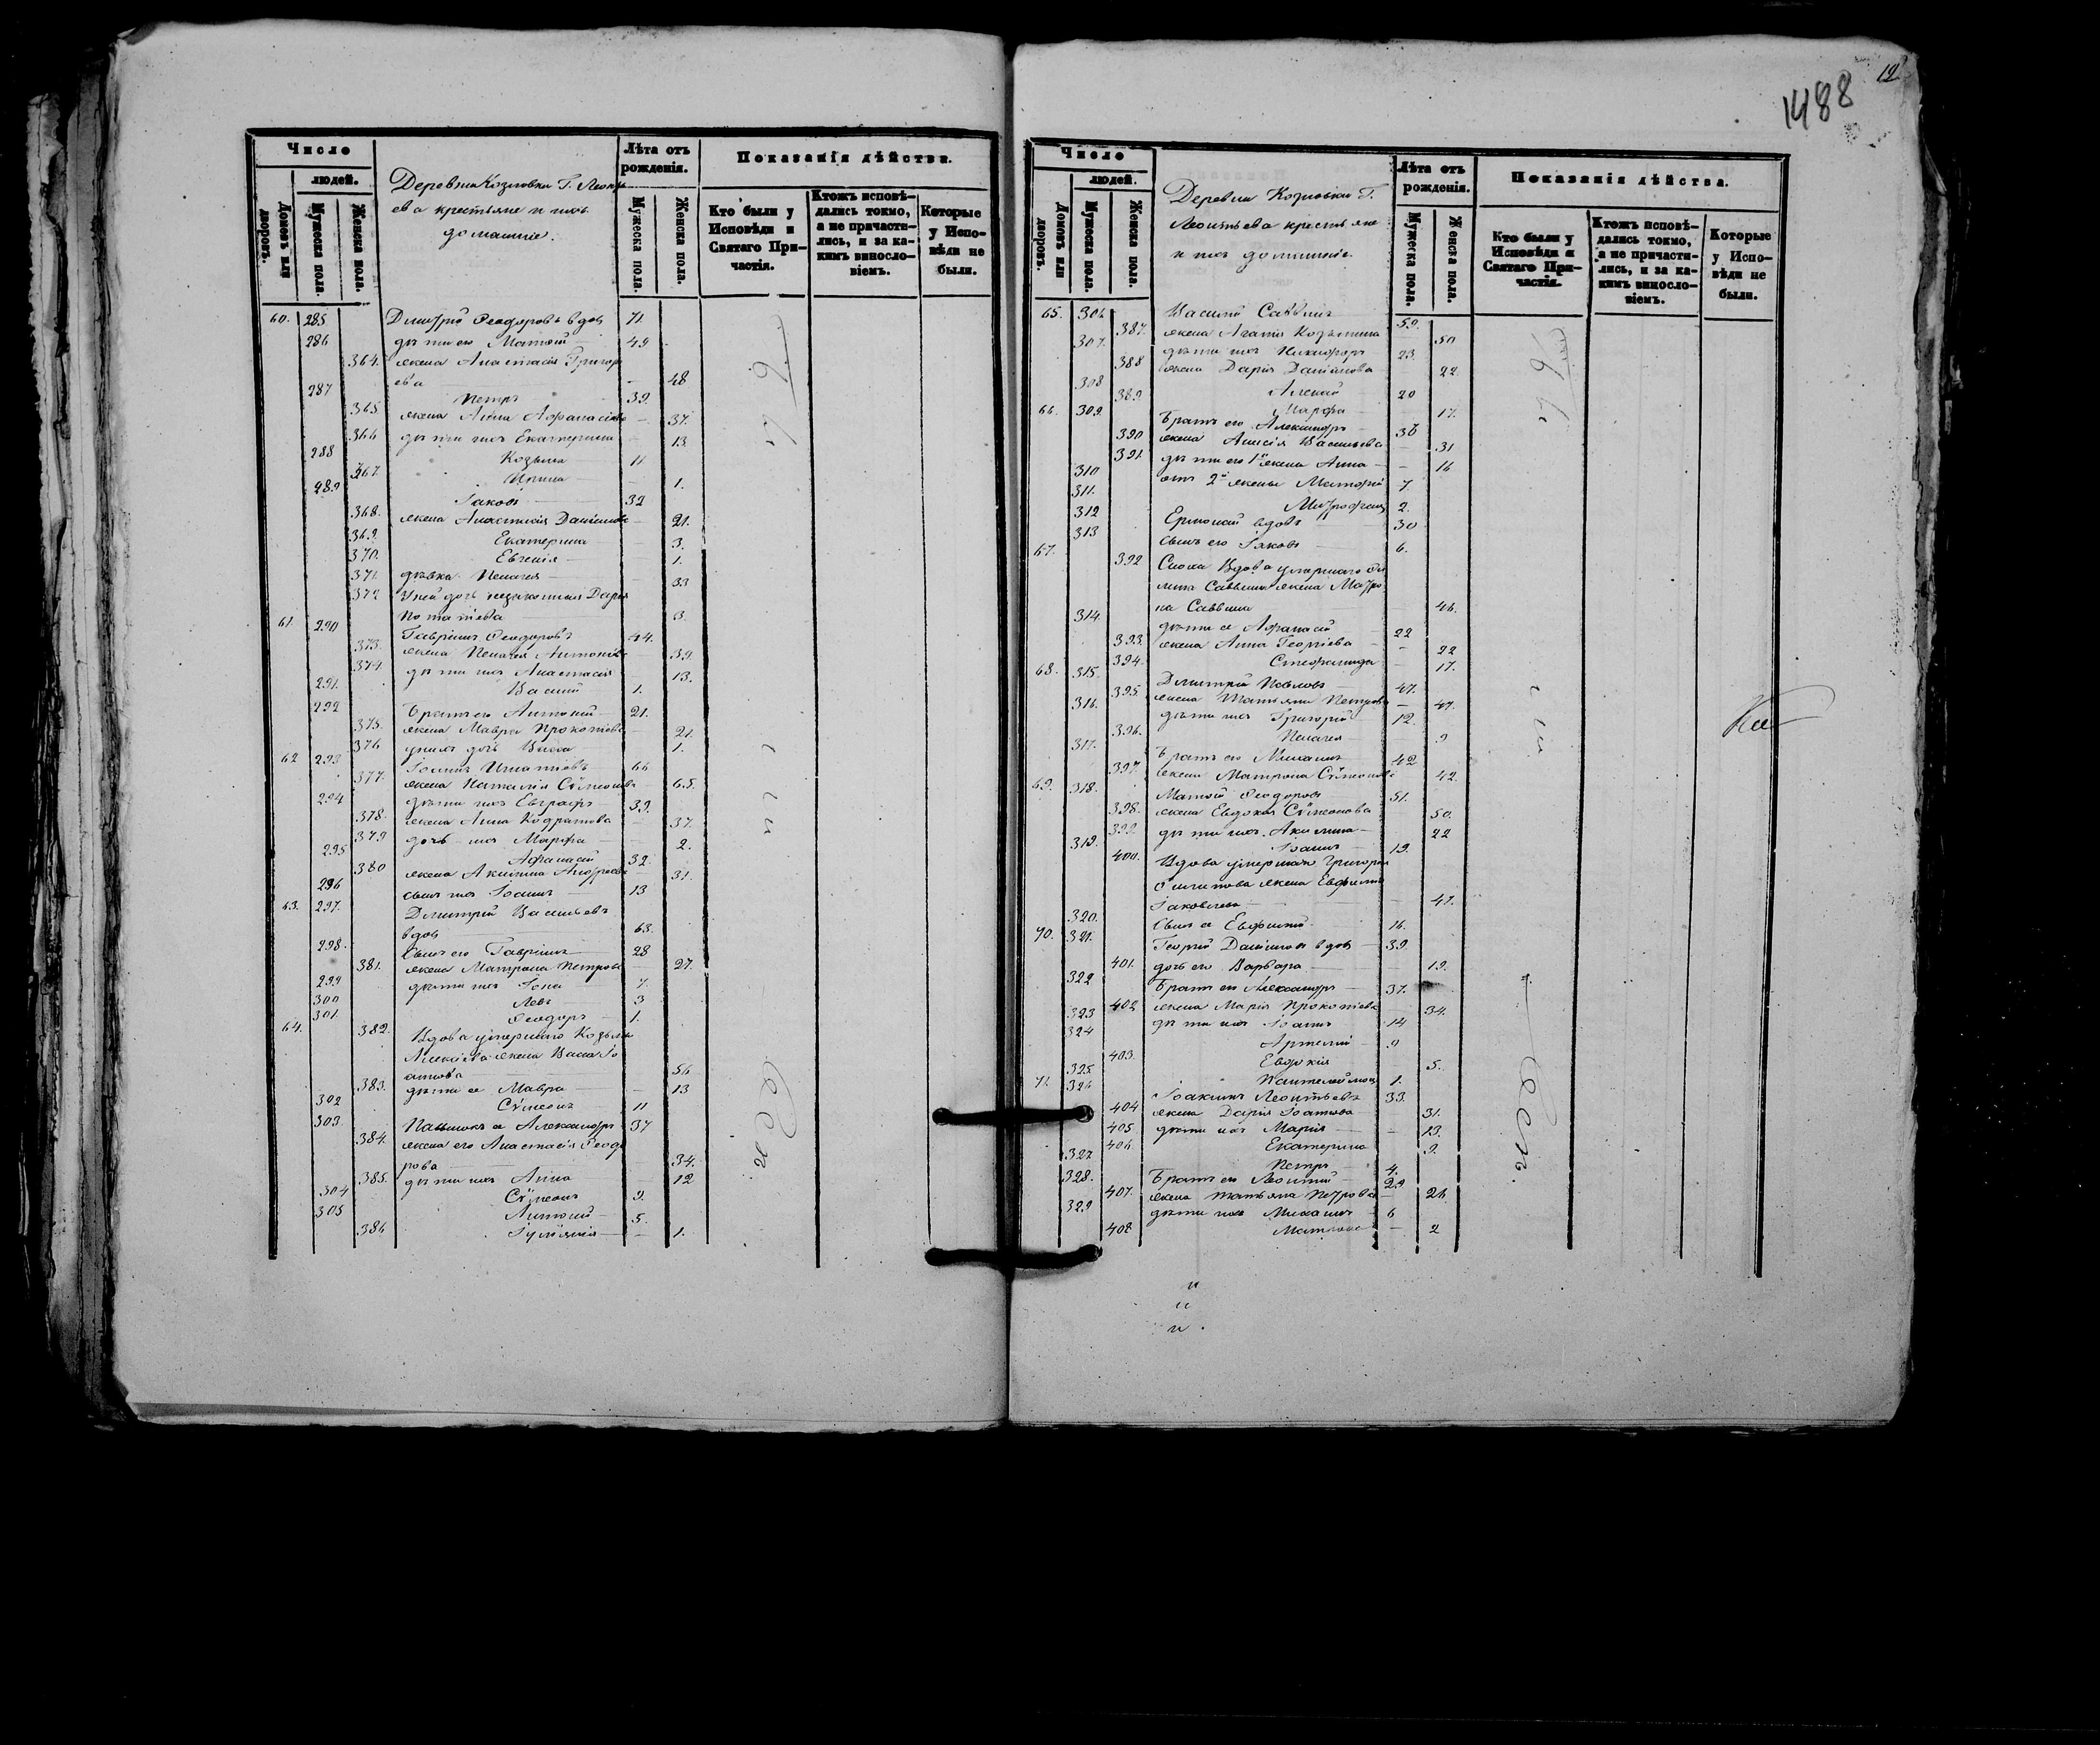 Число
людей.
Домовъ или дворовъ.
Мужеска пола.
Женска пола.
Деревни Козловки Г. Леонть
ева крестьяне и ихъ
домашніе.
Лѣта отъ рожденія.
Мужеска пола.
Женска пола.
Показанія дѣйства.
Кто были у Исповѣди и Святаго Причастія.
Ктожъ исповѣдались токмо, а не причастились, и за какимъ винословіемъ.
Которые у Исповѣди не были.
60. 285 Димитрій Ѳеодоровъ вдов 71.
286 дѣти его Матѳій 49
364. жена Анастасія Григор
ева 48
287 Петръ 39.
365 жена Анна Аѳанасіева 37.
366 дѣти ихъ Екатерина 13
288 Козьма 11
367. Ирина 1.
289 Іаковъ 32
368. жена Анастасія Даніилова 21.
369. Екатерина 3.
370. Евгенія 1.
371. дѣвка Пелагея 33
372 У ней дочь незаконная Дарья
Потапіева 3.
61. 290 Гавріилъ Ѳеодоровъ 44.
373. жена Пелагея Антонова 39.
374. дѣти ихъ Анастасія 13.
291. Василій 1.
292 Братъ его Антоній 21.
375. жена Мавра Прокопіева 21.
376 у нихъ дочь Васса 1.
62 293 Іоаннъ Игнатіевъ 66
377. жена Наталія Сѵмеонова 65.
294 дѣти ихъ Евграфъ 39.
378. жена Анна Кодратова 37.
379 дочь ихъ Марфа 2.
295 Аѳанасій 32.
380 жена Акилина Андреева 31.
296 сынъ ихъ Іоаннъ 13
63. 297. Димитрій Васильевъ
вдов 63.
298. Сынъ его Гавріилъ 28
381. жена Матрона Петрова 27.
299 дѣти ихъ Іона 7.
300 Левъ 3
301. Ѳеодоръ 1.
64. 382. Вдова умершаго Козьмы
Алексѣева жена Васса Іо
аннова 56
383. дѣти ея Мавра 13
302 Сѵмеонъ 11
303. Пасынокъ ея Александръ 37
384. жена его Анастасія Ѳеодо
рова 34.
385. дѣти ихъ Анна 12
304 Сѵмеонъ 9.
305 Антоній 5.
386 Іуліанія 1.
1488
12
Число
людей.
Домовъ или дворовъ.
Мужеска пола.
Женска пола.
Деревни Козловки Г.
Леонтьева крестьяне
и ихъ домашніе.
Лѣта отъ рожденія.
Мужеска пола.
Женска пола.
Показанія дѣйства.
Кто были у Исповѣди и Святаго Причастія.
Ктожъ исповѣдались токмо, а не причастились, и за какимъ винословіемъ.
Которые у Исповѣди не были.
65. 306 Василій Саввинъ 50.
387. жена Агапія Козьмина 50
307. дѣти ихъ Никифоръ 23.
388 жена Дарія Даніилова 22.
308 Алексій 20
389. Марфа 17.
66. 309. Братъ его Александръ 36
390 жена Анисія Васильева 31
391. дѣти его 1й жена Анна 16
310 отъ 2й жены Матѳій 7.
311. Митрофанъ 2.
312 Ермолай вдовъ 30
313 сынъ его Іаковъ 6.
67. 392 Сноха Вдова умершаго
Саввина жена Матро
на Саввина 46.
314. дѣти ея Аѳанасій 22
393. жена Анна Георгіева 22
394. Стефанида 17.
68. 315. Димитрій Павловъ 47.
395. жена Татьяна Петрова 47.
316. дѣти ихъ Григорій 12.
396. Пелагея 9
317. Братъ его Михаилъ 42
397. жена Матрона Сѵмеонова 42.
69. 318. Матѳій Ѳеодоровъ 51.
398. жена Евдокія Сѵмеонова 50.
399. дѣти ихъ Акилина 22
319. Іоаннъ 19.
400. Вдова умершаго Григорья
Филипова жена Евфимія
Іаковлева 47.
320. Сынъ ея Евфимій 16.
70. 321. Георгій Даніиловъ вдов 39.
401. дочь его Варвара 19.
322 Братъ его Александръ 37.
402 жена Марія Прокопіева 34.
323 дѣти ихъ Іоаннъ 14
324 Артемій 9
403. Евдокія 5.
325. Пантелеймонъ 1.
71. 326 Іоакимъ Леонтьевъ 33.
404 жена Дарія Іоаннова 31.
405 дѣти ихъ Марія 13.
406 Екатерина 9.
327 Петръ 4.
328. Братъ его Леонтій 29
407. жена Татьяна Петрова 26
329 дѣти ихъ Михаилъ 6
408 Матрона 2